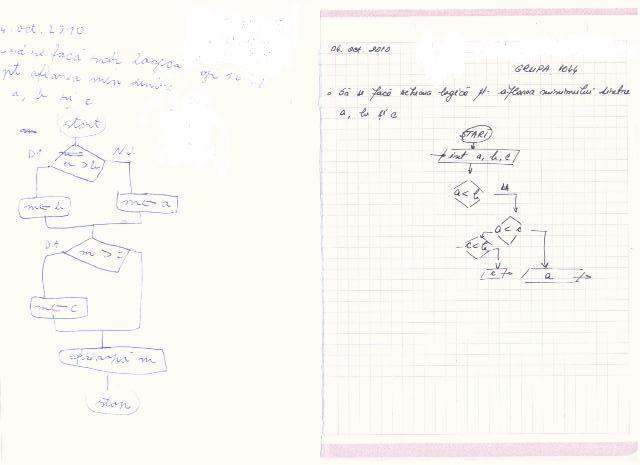 oct. 2010
să se facă sch logica
pt aflarea min dintre
a, b și c
start
DA
NU
a > b
m ← b
m ← a
DA
m > c
m ← c
afișează m
stop
06. oct. 2010
GRUPA 1044
să se facă schema logică pt aflarea minimului dintre
a, b și c
START
print a, b, c
a < b
DA
a < c
c < b
c
a